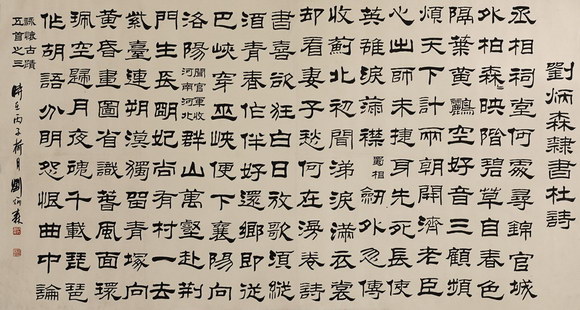 劉炳森隸書杜詩
丞相祠堂何處尋錦官城
外柏森=映階碧草自春色
隔葉黃鸝空好音三顧頻
煩天下計兩朝開濟老臣
心出師未捷身先死長使
英雄淚滿襟蜀相劍外忽傳
收薊北初聞涕淚滿衣裳
却看妻子愁何在漫卷詩
書喜欲狂白日放歌須縱
酒青春作伴好還鄉即從
巴峽穿巫峽便下襄陽向
洛陽聞官軍收河南河北群山萬壑赴荊
門生長明妃尚有村一去
紫臺連朔漠獨留青塚向
黃昏畫圖省識春風面環
珮空歸月夜魂千載琵琶
作胡語分明怨恨曲中論
詠懷古蹟
五首之三
時在丙子月劉炳森